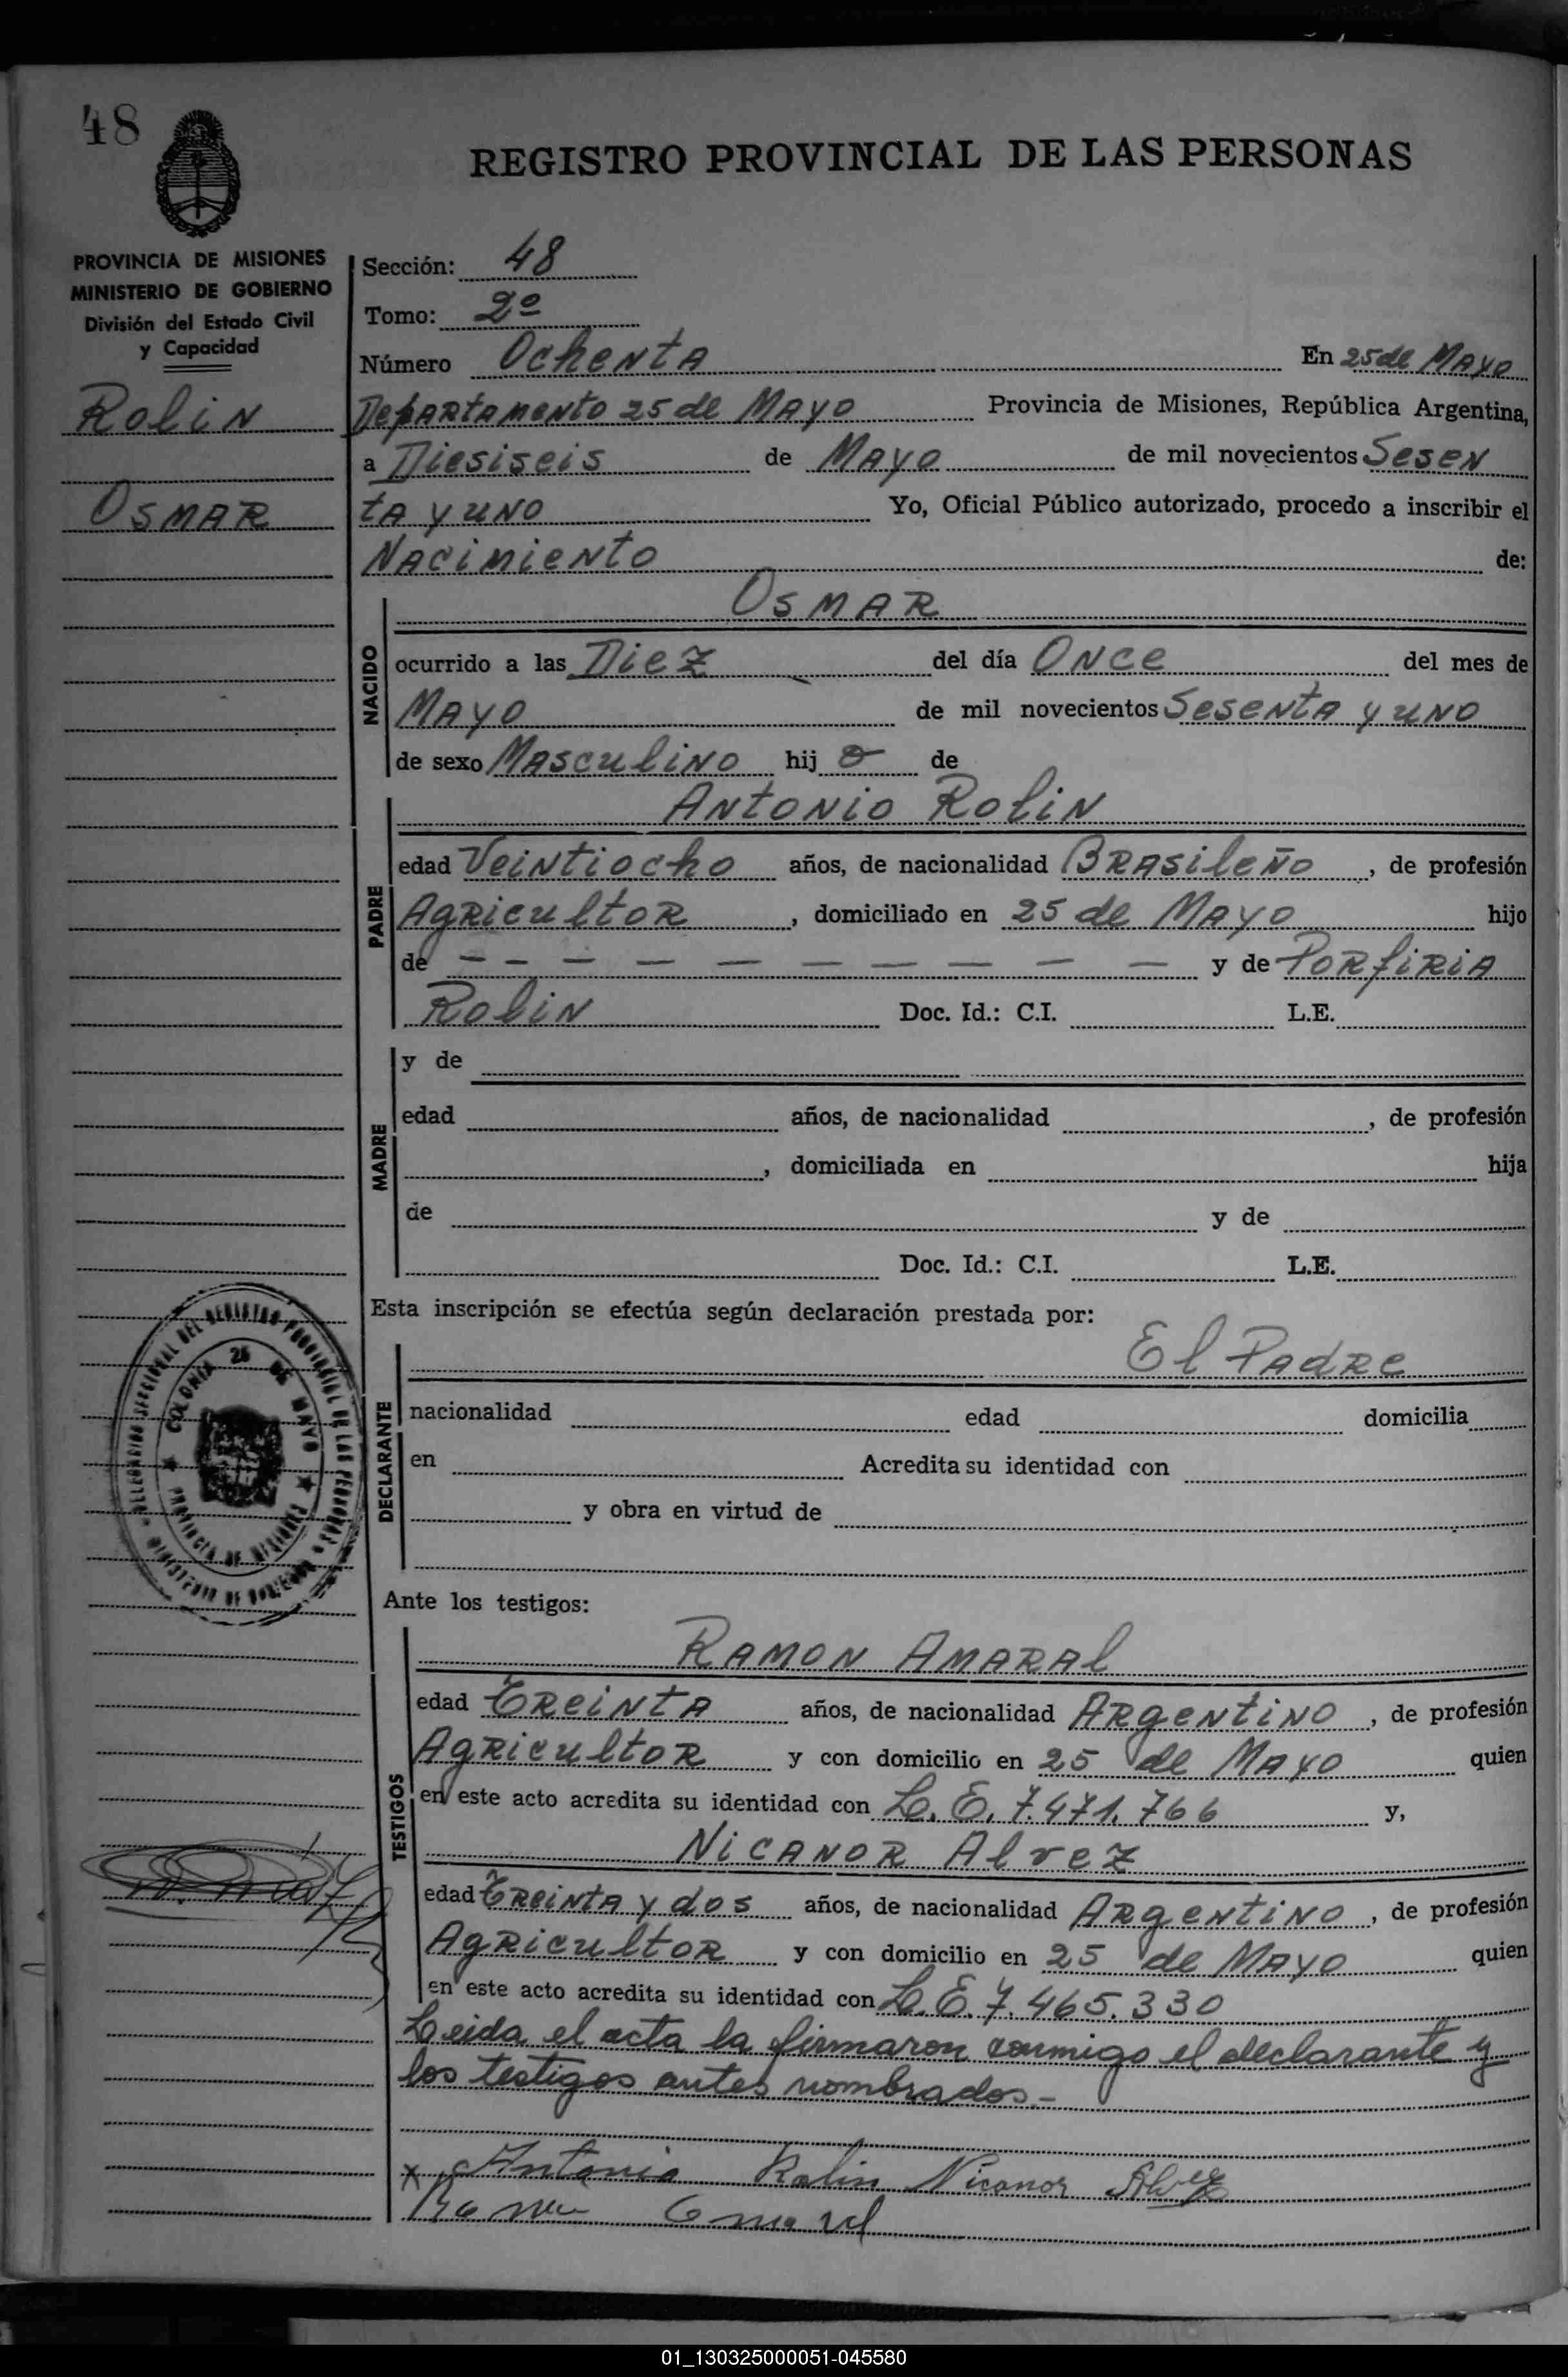 48
REGISTRO PROVINCIAL DE LAS PERSONAS
PROVINCIA DE MISIONES
MINISTERIO DE GOBIERNO
División del Estado Civil
y Capacidad
Rolin
Osmar
Sección: 48
Tomo: 2º
Número Ochenta En 25 de Mayo
Departamento 25 de Mayo Provincia de Misiones, República Argentina,
a Diesiseis de Mayo de mil novecientos Sesen
ta y uno Yo, Oficial Público autorizado, procedo a inscribir el
Nacimiento de:
NACIDO
Osmar
ocurrido a las Diez del día Once del mes de
Mayo de mil novecientos Sesenta y uno
de sexo Masculino hij o de
PADRE
Antonio Rolin
edad Veintiocho años, de nacionalidad Brasileño, de profesión
Agricultor, domiciliado en 25 de Mayo hijo
de — — — — — — — — — — y de Porfiria
Rolin Doc. Id.: C.I. L.E.
MADRE
y de
edad años, de nacionalidad , de profesión
, domiciliada en hija
de y de
Doc. Id.: C.I. L.E.
Esta inscripción se efectúa según declaración prestada por:
El Padre
DECLARANTE
nacionalidad edad domicilia
en Acredita su identidad con
y obra en virtud de
DELEGACION SECCIONAL DEL REGISTRO PROVINCIAL DE LAS PERSONAS
MINISTERIO DE GOBIERNO
COLONIA 25 DE MAYO
PROVINCIA DE MISIONES
Ante los testigos:
TESTIGOS
Ramon Amaral
edad Treinta años, de nacionalidad Argentino, de profesión
Agricultor y con domicilio en 25 de Mayo quien
en este acto acredita su identidad con L.E. 7.471.766 y,
Nicanor Alvez
edad Treinta y dos años, de nacionalidad Argentino, de profesión
Agricultor y con domicilio en 25 de Mayo quien
en este acto acredita su identidad con L.E. 7.465.330
Leida el acta la firmaron conmigo el declarante y
los testigos antes nombrados.-
x Antonio Rolin Nicanor Alvez
Ramon Amaral
01_130325000051-045580